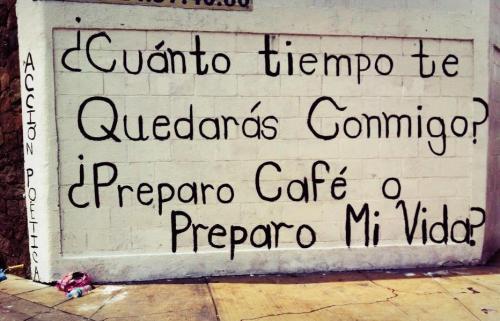 ¿Cuánto tiempo te
Quedarás Conmigo?
¿Preparo Café o
Preparo Mi Vida?
ACCIÓN POÉTICA